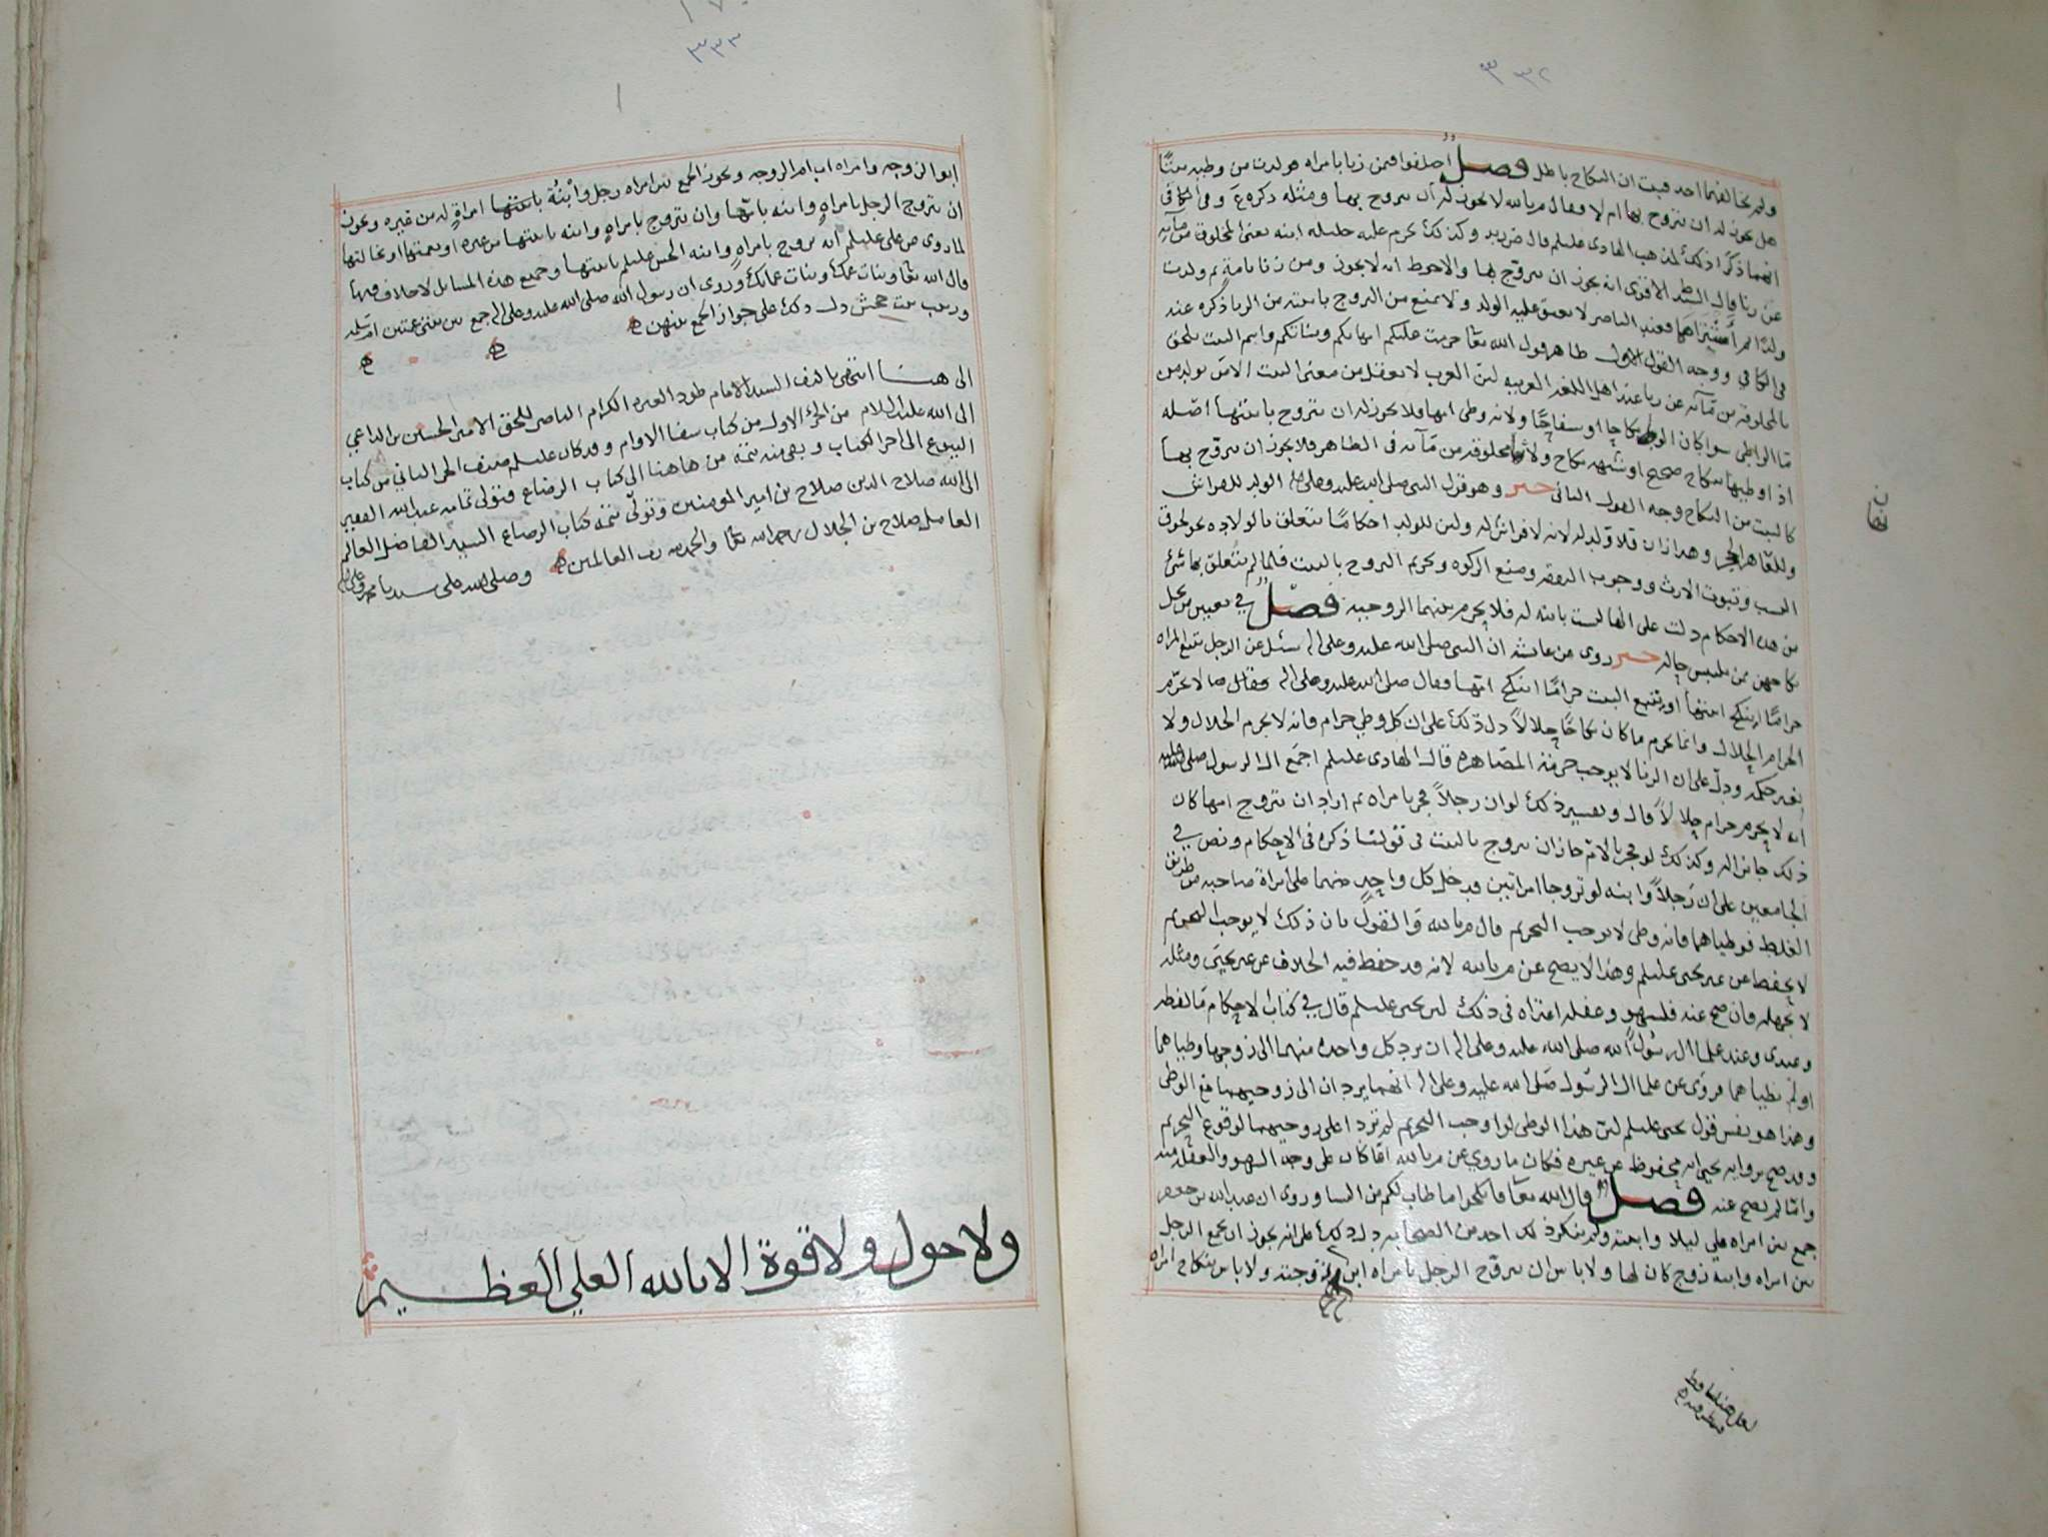 ٣٣٢
ولم يخالفهما احد فثبت ان النكاح باطل فصل اختلفوا فيمن زنا بامراه فولدت من وطيه بنتًا
هل يجوز له ان يتزوج بها ام لا فقال م بالله لا يجوز له ان يتزوج بها ومثله ذكره ع وفي الكافي
انهما ذكرا ذلك لمذهب الهادي عليلم قال ض زيد وكذلك يحرم عليه حليله ابنه يعني المخلوق من مآئه
عن زنا قال السيد ط الاقوى انه يجوز ان يتزوج بها والاحوط انه لا يجوز ومن زنا بامةٍ ثم ولدت
ولدًا ثم اشتراها فعند الناصر لا يعتق عليه الولد ولا يمنع من التزوج بابنته من الزنا ذكره عنه
في الكافي ووجه القول الاول ظاهر قول الله تعا حرمت عليكم امهاتكم وبناتكم واسم البنت يلحق
بالمخلوقه من مآئه عن زنا عند اهل اللغه العربيه لان العرب لا تعقل من معنى البنت الا من تولد من
مآ الواطي سوا كان الوطي نكاحا او سفاحًا ولانه وطى امها فلا يجوز له ان يتزوج بابنتها اصله
اذا وطيها بنكاح صحيح او شبهه نكاح ولانها مخلوقه من مآئه في الظاهر فلا يجوز ان يتزوج بها
كالبنت من النكاح وجه القول الثاني خبر وهو قول النبي صلى الله عليه وعلى اله الولد للفراش
وللعاهر الحجر وهذا زان فلا ولد له لانه لا فراش له ولان للولد احكامًا تتعلق بالولاده نحو لحوق
النسب وثبوت الارث ووجوب النفقه ومنع الزكوه وتحريم التزوج بالبنت فلما لم يتعلق بها شئ
من هذه الاحكام دلت على انها ليست بابنه له فلا يحرم بينهما الزوجيه فصل في تعيين من يحل
نكاحهن ممن يلتبس حاله خبر روى عن عايشه ان النبي صلى الله عليه وعلى اله سئل عن الرجل يتبع المراه
حرامًا اينكح ابنتها او يتبع البنت حرامًا اينكح امها فقال صلى الله عليه وعلى اله وسلم لا يحرم
الحرام الحلال وانما يحرم ما كان نكاحًا حلالاً دل ذلك على ان كل وطي حرام فانه لا يحرم الحلال ولا
يغير حكمه ودل على ان الزنا لا يوجب حرمة المصاهره قال الهادي عليلم اجمع ال الرسول صلى الله عليه
انه لا يحرم حرام حلالاً قال وتفسير ذلك لو ان رجلاً فجر بامراه ثم اراد ان يتزوج امها كان
ذلك جائزا له وكذلك لو فجر بالام جاز ان يتزوج بالبنت في قولنا ذكره في الاحكام ونص في
الجامعين على ان رجلاً وابنه لو تزوجا امراتين فدخل كل واحد منهما على امراة صاحبه من طريق
الغلط فوطياهما فانه وطى لا يوجب التحريم قال م بالله والقول بان ذلك لا يوجب التحريم
لا يحفظ عن غير يحيى عليلم وهذا لا يصح عن م بالله لانه قد حفظ فيه الخلاف عن غير يحيى ومثله
لا يجهله فان صح عنه فلسهو وغفله اعتراه في ذلك لان يحيى عليلم قال في كتاب الاحكام ما لفظه
وعندي وعند علما ال رسول الله صلى الله عليه وعلى اله ان يرد كل واحده منهما الى زوجها وطياهما
او لم يطياهما فروى عن علما ال الرسول صلى الله عليه وعلى اله انهما يردان الى زوجيهما مع الوطي
وهذا هو نفس قول يحيى عليلم لان هذا الوطي لو اوجب التحريم لم تردا على زوجيهما لوقوع التحريم
وقد صح بروايه يحيى انه محفوظ عن غيره فكان ما روي عن م بالله اما كان على وجه السهو والغفله منه
واما لم يصح عنه فصل قال الله تعا فانكحوا ما طاب لكم من النسا وروى ان عبدالله بن جعفر
جمع بين امراه علي ليلا وابنته ولم ينكر ذلك احد من الصحابه دل ذلك على انه يجوز ان يجمع الرجل
بين امراه وابنه زوج كان لها ولا باس ان يتزوج الرجل بامراه ابن زوجته ولا باس بنكاح امراه
لعل هنا ساقط
٣٣٣
ابو الزوجه وامراه اب ام الزوجه ويجوز الجمع بين امراه رجل وابنة
ان يتزوج الرجل بامراهٍ وابنه بابنتها وان يتزوج بامراهٍ وابنه بابنتها من غيره او بعمتها او بخالتها
لما روى عن علي عليلم انه تزوج بامراه وابنه الحسن عليلم بابنتها وجميع هذه المسايل لا خلاف فيها
قال الله تعا وبنات عمك وبنات عماتك وروى ان رسول الله صلى الله عليه وعلى اله جمع بين بنتي عمتين ام سلمه
وزينب بنت جحش دل ذلك على جواز الجمع بينهن
الى هنا انتهى تاليف السيد الامام طود العتره الكرام الناصر للحق الامير الحسين بن الداعي
الى الله عليه السلام من الجزء الاول من كتاب شفا الاوام وقد كان عليلم صنف الجزء الثاني من كتاب
البيوع الى اخر الكتاب وبقي منه تتمه من هاهنا الى كتاب الرضاع فتولى تمامه عبد الله الفقير
الى الله صلاح الدين صلاح بن امير المومنين وتولّى تتمة كتاب الرضاع السيد الفاضل العالم
العامل صلاح بن الجلال رحمه الله تعا والحمد لله رب العالمين وصلى الله على سيدنا محمد وعلى اله
ولا حول ولا قوة الا بالله العلي العظيم